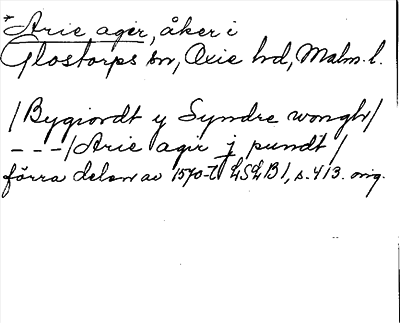 * Arie ager, åker i
Glostorps sn, Oxie hd, Malm. l.
/Bygiordt y Syndre wongh/
- - -/Arie ager j pundt/
förra delen av 1570-t LSLB1, s. 413. orig.